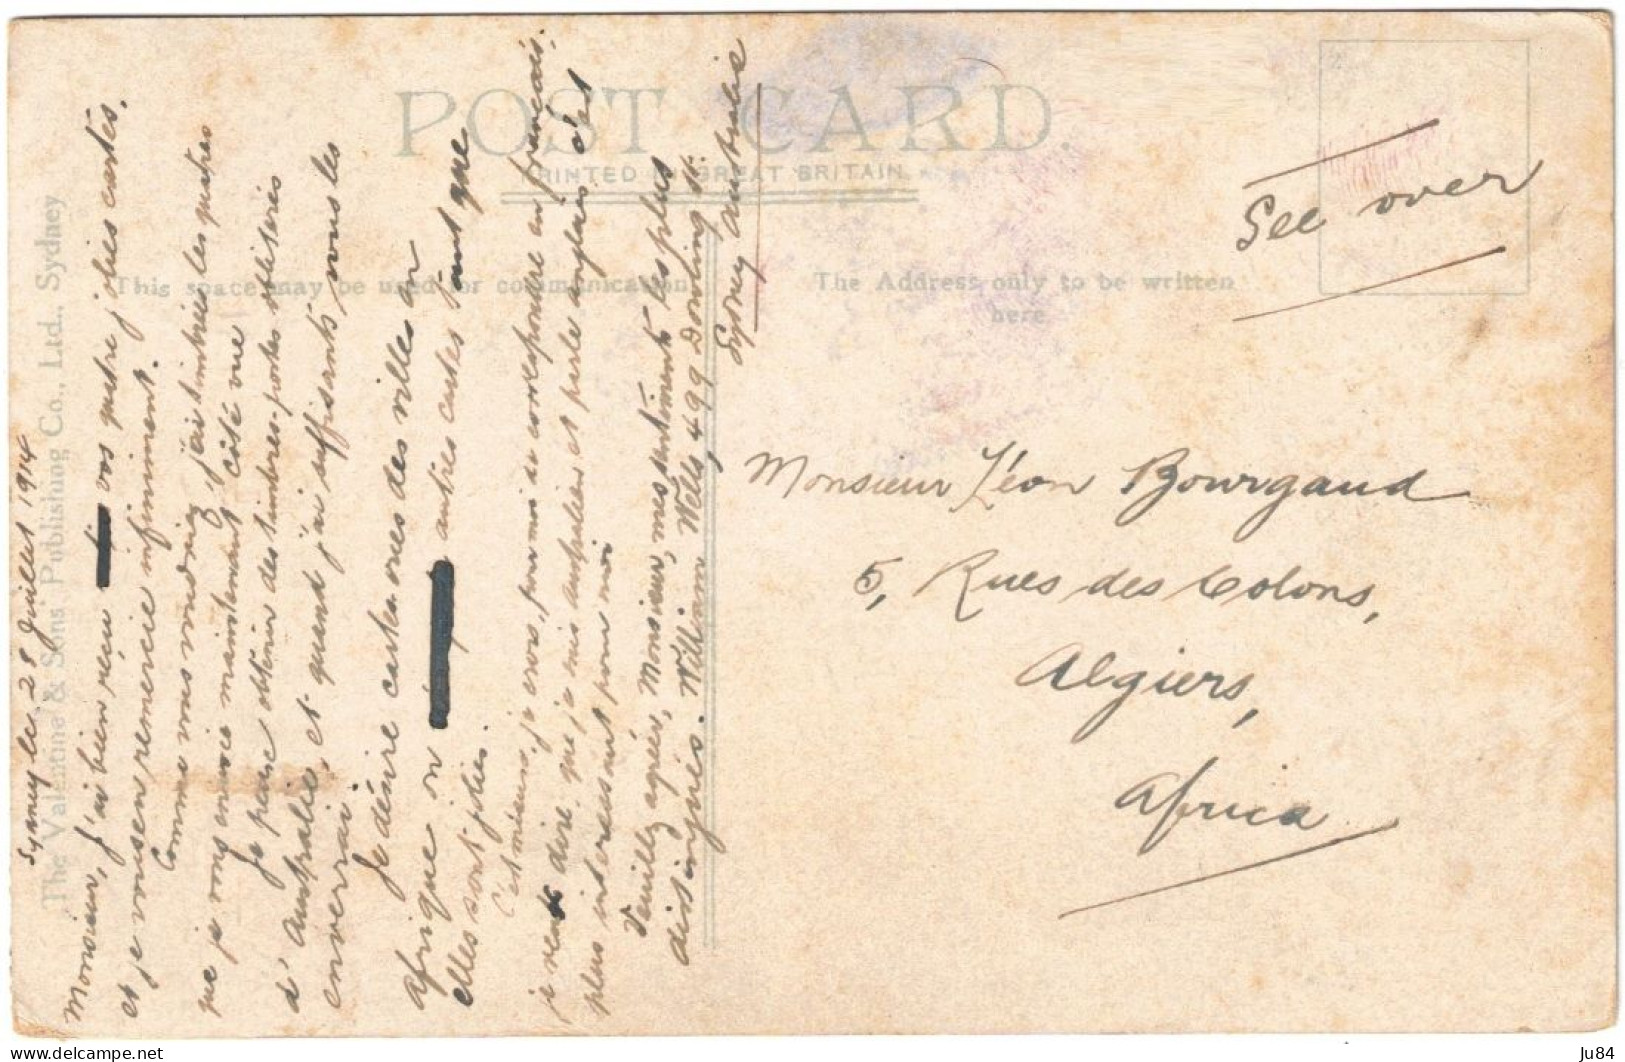 POST CARD
PRINTED IN GREAT BRITAIN
This space may be used for communication
The Address only to be written
here
The Valentine & Sons Publishing Co., Ltd., Sydney
See over
Sydney le 28 Juillet 1914
Monsieur, J'ai bien reçu vos quatre jolies cartes,
et je vous en remercie infiniment.
Comme vous voudrez, j'ai timbrés les quatres
que je vous envoie maintenant côté vue
Je peux obtenir des timbres-postes oblitérés
d'Australie, et quand j'ai suffisants, vous les
enverrai.
Je désire cartes vues des villes en
Afrique on autres cartes tant que
elles sont jolies.
C'est mieux, je crois, pour moi de correspondre en français.
je veux dire que je suis anglais et parle anglais c'est
plus interessant pour moi
Veuillez agréer, Monsieur, mes sentiments les plus
distingués. William Wels, 499 Dowling St.
Sydney Australie
Monsieur Léon Bourgaud
5, Rues des Colons,
Algiers,
Africa
Ju84